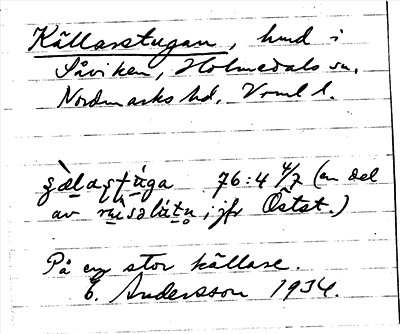 Källarstugan, hmd i
Såviken, Holmedals sn,
Nordmarks hd, Vrml l.
76:4 4/7 (en del
av jfr Östst.)
På en stor källare.
E. Andersson 1934.